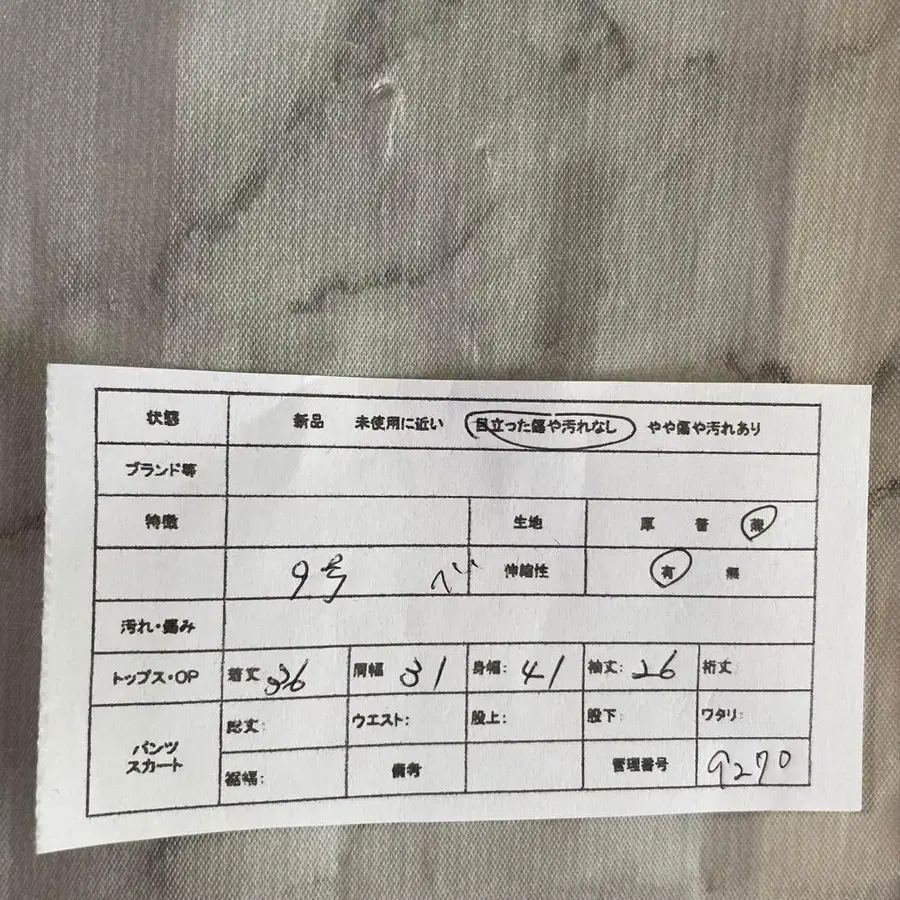 状態 新品 未使用に近い 目立った傷や汚れなし やや傷や汚れあり
ブランド等
特徴 生地 厚 普 薄
9号 ベ 伸縮性 有 無
汚れ・傷み
トップス・OP 着丈 肩幅 31 身幅: 41 袖丈: 26 裄丈:
パンツ スカート
総丈: ウエスト: 股上: 股下: ワタリ:
裾幅: 備考 管理番号 9270